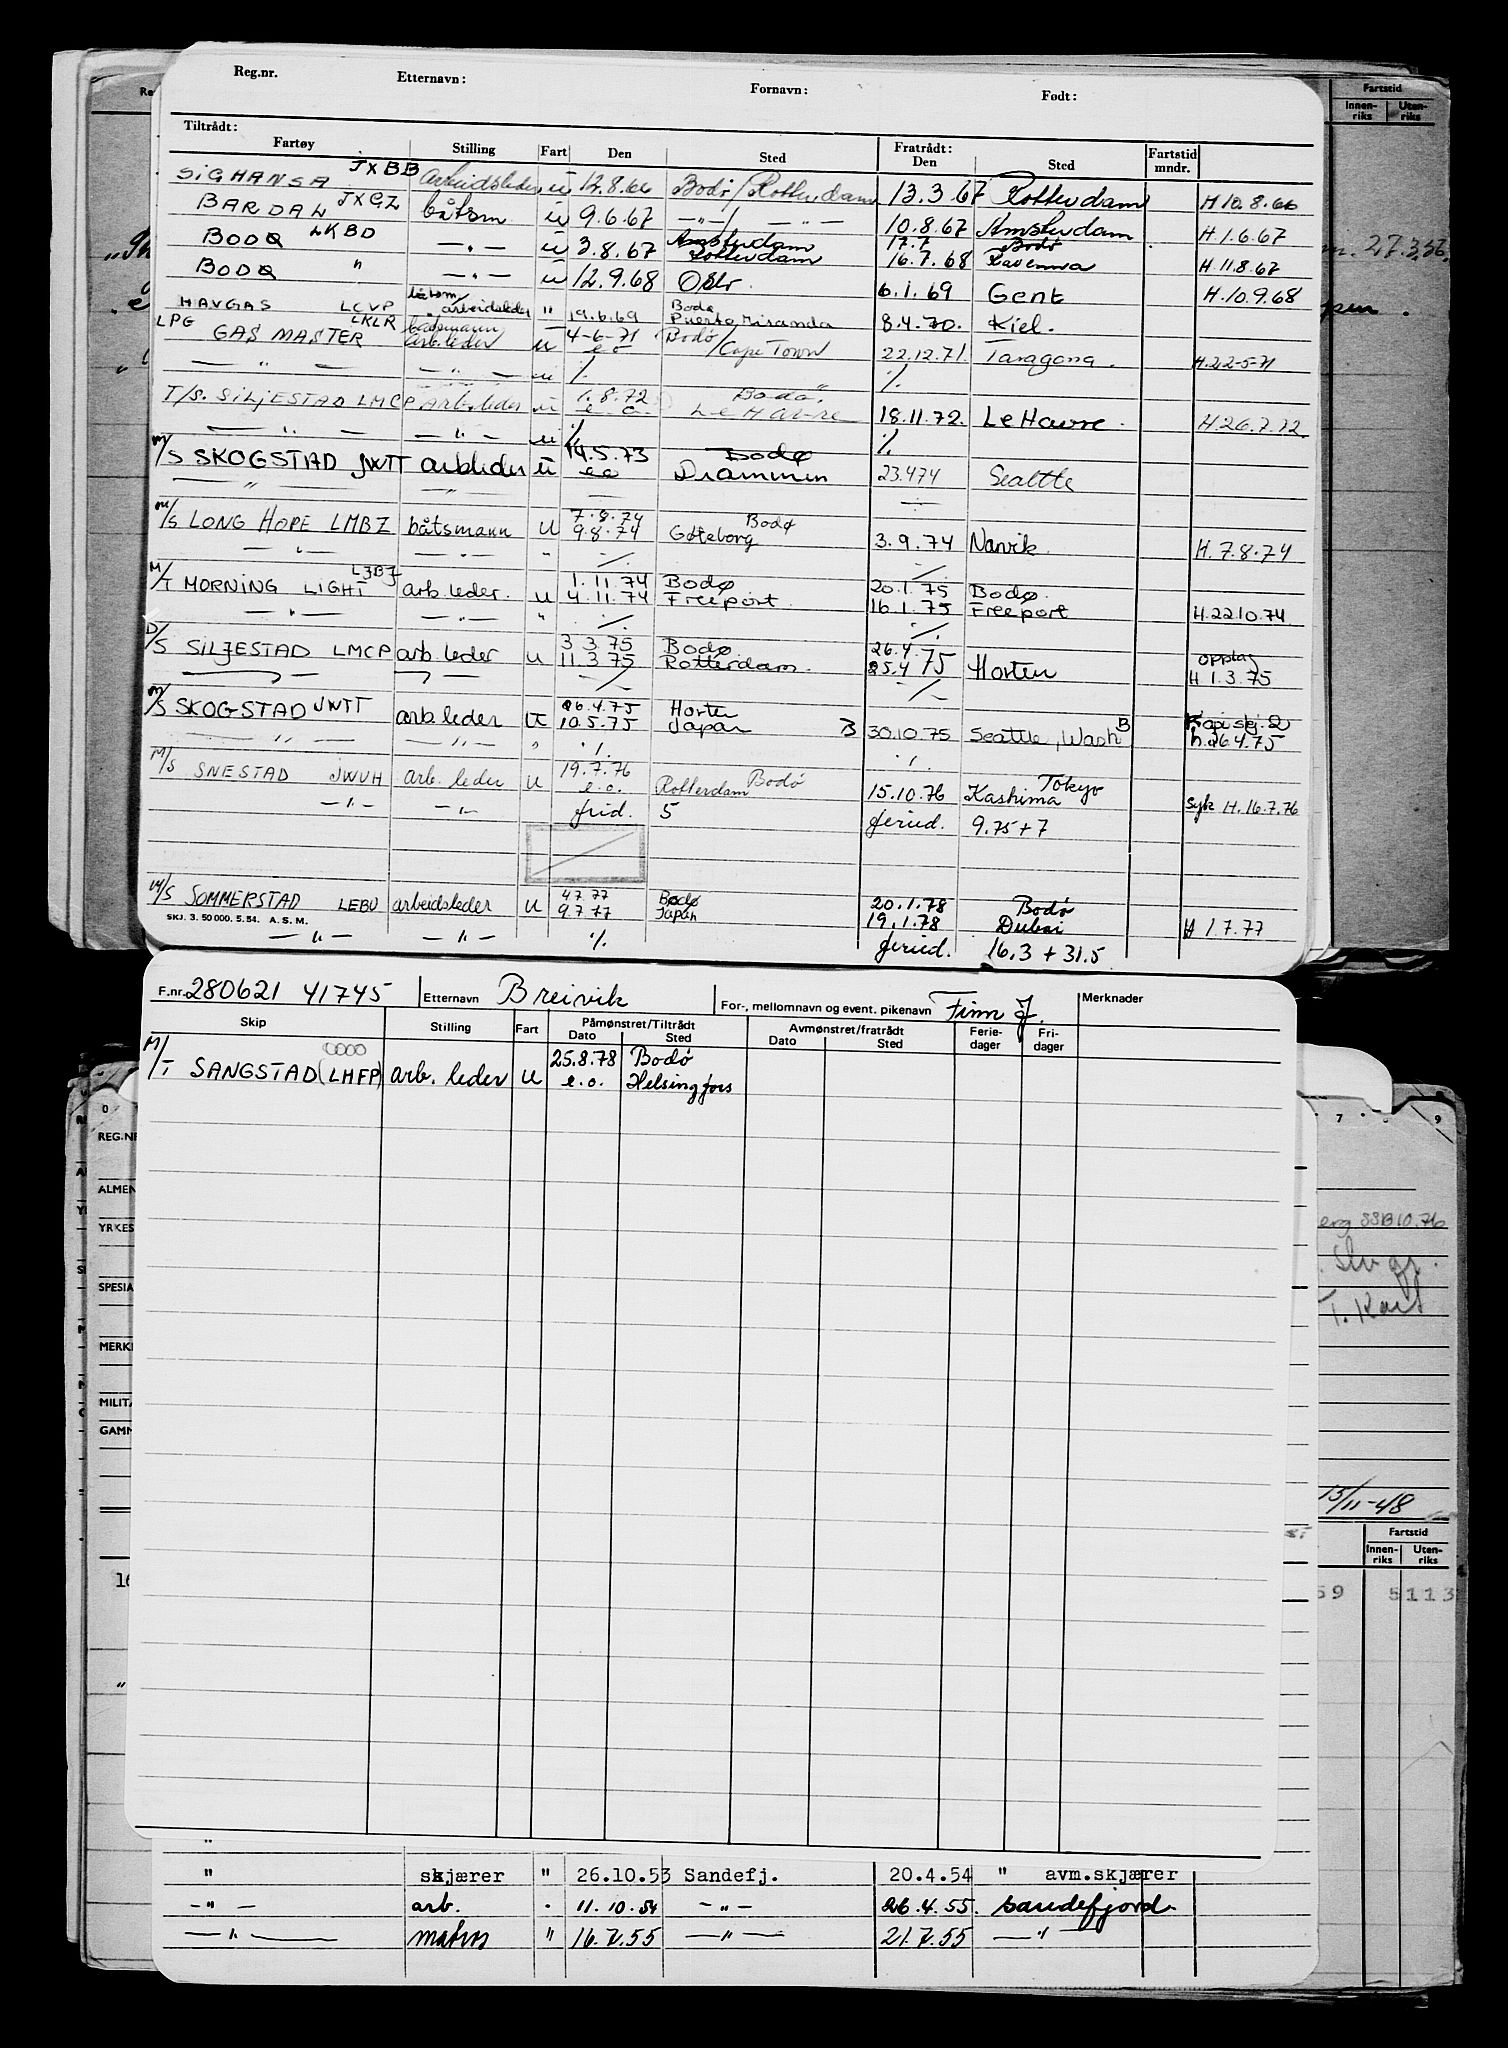 Reg.nr. Etternavn: Fornavn: Født:
Tiltrådt: Fratrådt: Fartstid
Fartøy Stilling Fart Den Sted Den Sted mndr.
SIGHANSA JXBB Arbeidsleder ü 12.8.66 Bodø/Rotterdam 13.3.67 Rotterdam H 10.8.66
BARDAL JXGZ båtsm ü 9.6.67 —"—/ —"— 10.8.67 Amsterdam H.1.6.67
BODØ LKBD —"— ü 3.8.67 Amsterdam Rotterdam 17.7 16.7.68 Bodø Ravenna H.11.8.67
BODØ " —"— ü 12.9.68 Oslo 6.1.69 Gent H.10.9.68
HAVGAS LCVP båtsm/arbeidsleder " 19.6.69 Bodø Puerto Miranda 8.4.70. Kiel.
LPG GAS MASTER LKLR båtsmann arb.leder u 4-6-71 e o Bodø/Cape Town 22.12.71. Taragona. H.22-5-71
— " — — " — ü ·/. " ·/.
T/S. SILJESTAD LMCP Arb.leder ü 1.8.72 e o Bodø. Le Havre 18.11.72. Le Havre. H 26.7.72.
— " — — " — ü ·/. ·/.
M/S SKOGSTAD JWTT arbleder ü 14.5.73 eo Bodø Drammen 23.474 Seattle
— " — — " — — —
M/S LONG HOPE LMBZ båtsmann u 7.8.74 9.8.74 Bodø Gøteborg 3.9.74 Narvik H.7.8.74
— " — — " — " ·/. ·/.
M/T MORNING LIGHT LJBJ arb leder. u 1.11.74 4.11.74 Bodø Freeport 20.1.75 16.1.75 Bodø. Freeport H.22.10.74
— " — — " — " ·/. ·/.
D/S SILJESTAD LMCP arb leder u 3 3 75 11.3 75 Bodø Rotterdam. 26.4. 25.4 75 Horten opplag H 1.3.75
M/S SKOGSTAD JWTT arb.leder U 26.4.75 10.5.75 Horten Japan B 30.10.75 Seattle, Wash B Kopi skj.2 h.26.4.75
— " — — " — " ·/. ·/.
M/S SNESTAD JWVH arb. leder u 19.7.76 e.o. Rotterdam Bodø 15.10.76 Kashima Tokyo Syk H.16.7.76
— " — — " — frid. 5 feried. 9.75 + 7
M/S SOMMERSTAD LEBU arbeidsleder u 4.7 77 9.7 77 Bodø Japan 20.1.78 19.1.78 Bodø Dubai H 1.7.77
SKJ. 3. 50 000. 5. 54. A. S. M.
— " — — " — ·/. feried. 16.3 + 31.5
F.nr. 280621 41745 Etternavn Breivik For-, mellomnavn og event. pikenavn Finn J. Merknader
Skip Stilling Fart Påmønstret/Tiltrådt Avmønstret/fratrådt Ferie-dager Fri-dager
Dato Sted Dato Sted
M/T SANGSTAD (LHFP) arb. leder u 25.8.78 e.o. Bodø Helsingfors
" skjærer " 26.10.53 Sandefj. 20.4.54 " avm.skjærer
— " — arb. " 11.10.54 — " — 26.4.55. Sandefjord.
— " — matros " 16.7.55 — " — 21.7.55 — " —
Fartstid
Innen-riks Uten-riks
27.3.56.
0 7 8 9
REG.NR
ALMEN
YRKES
SPESIA
MERKI
MILITA
GAMM
erg SSB 10.76
T. Kart
15/11-48
Fartstid
Innen-riks Uten-riks
16 59 5113